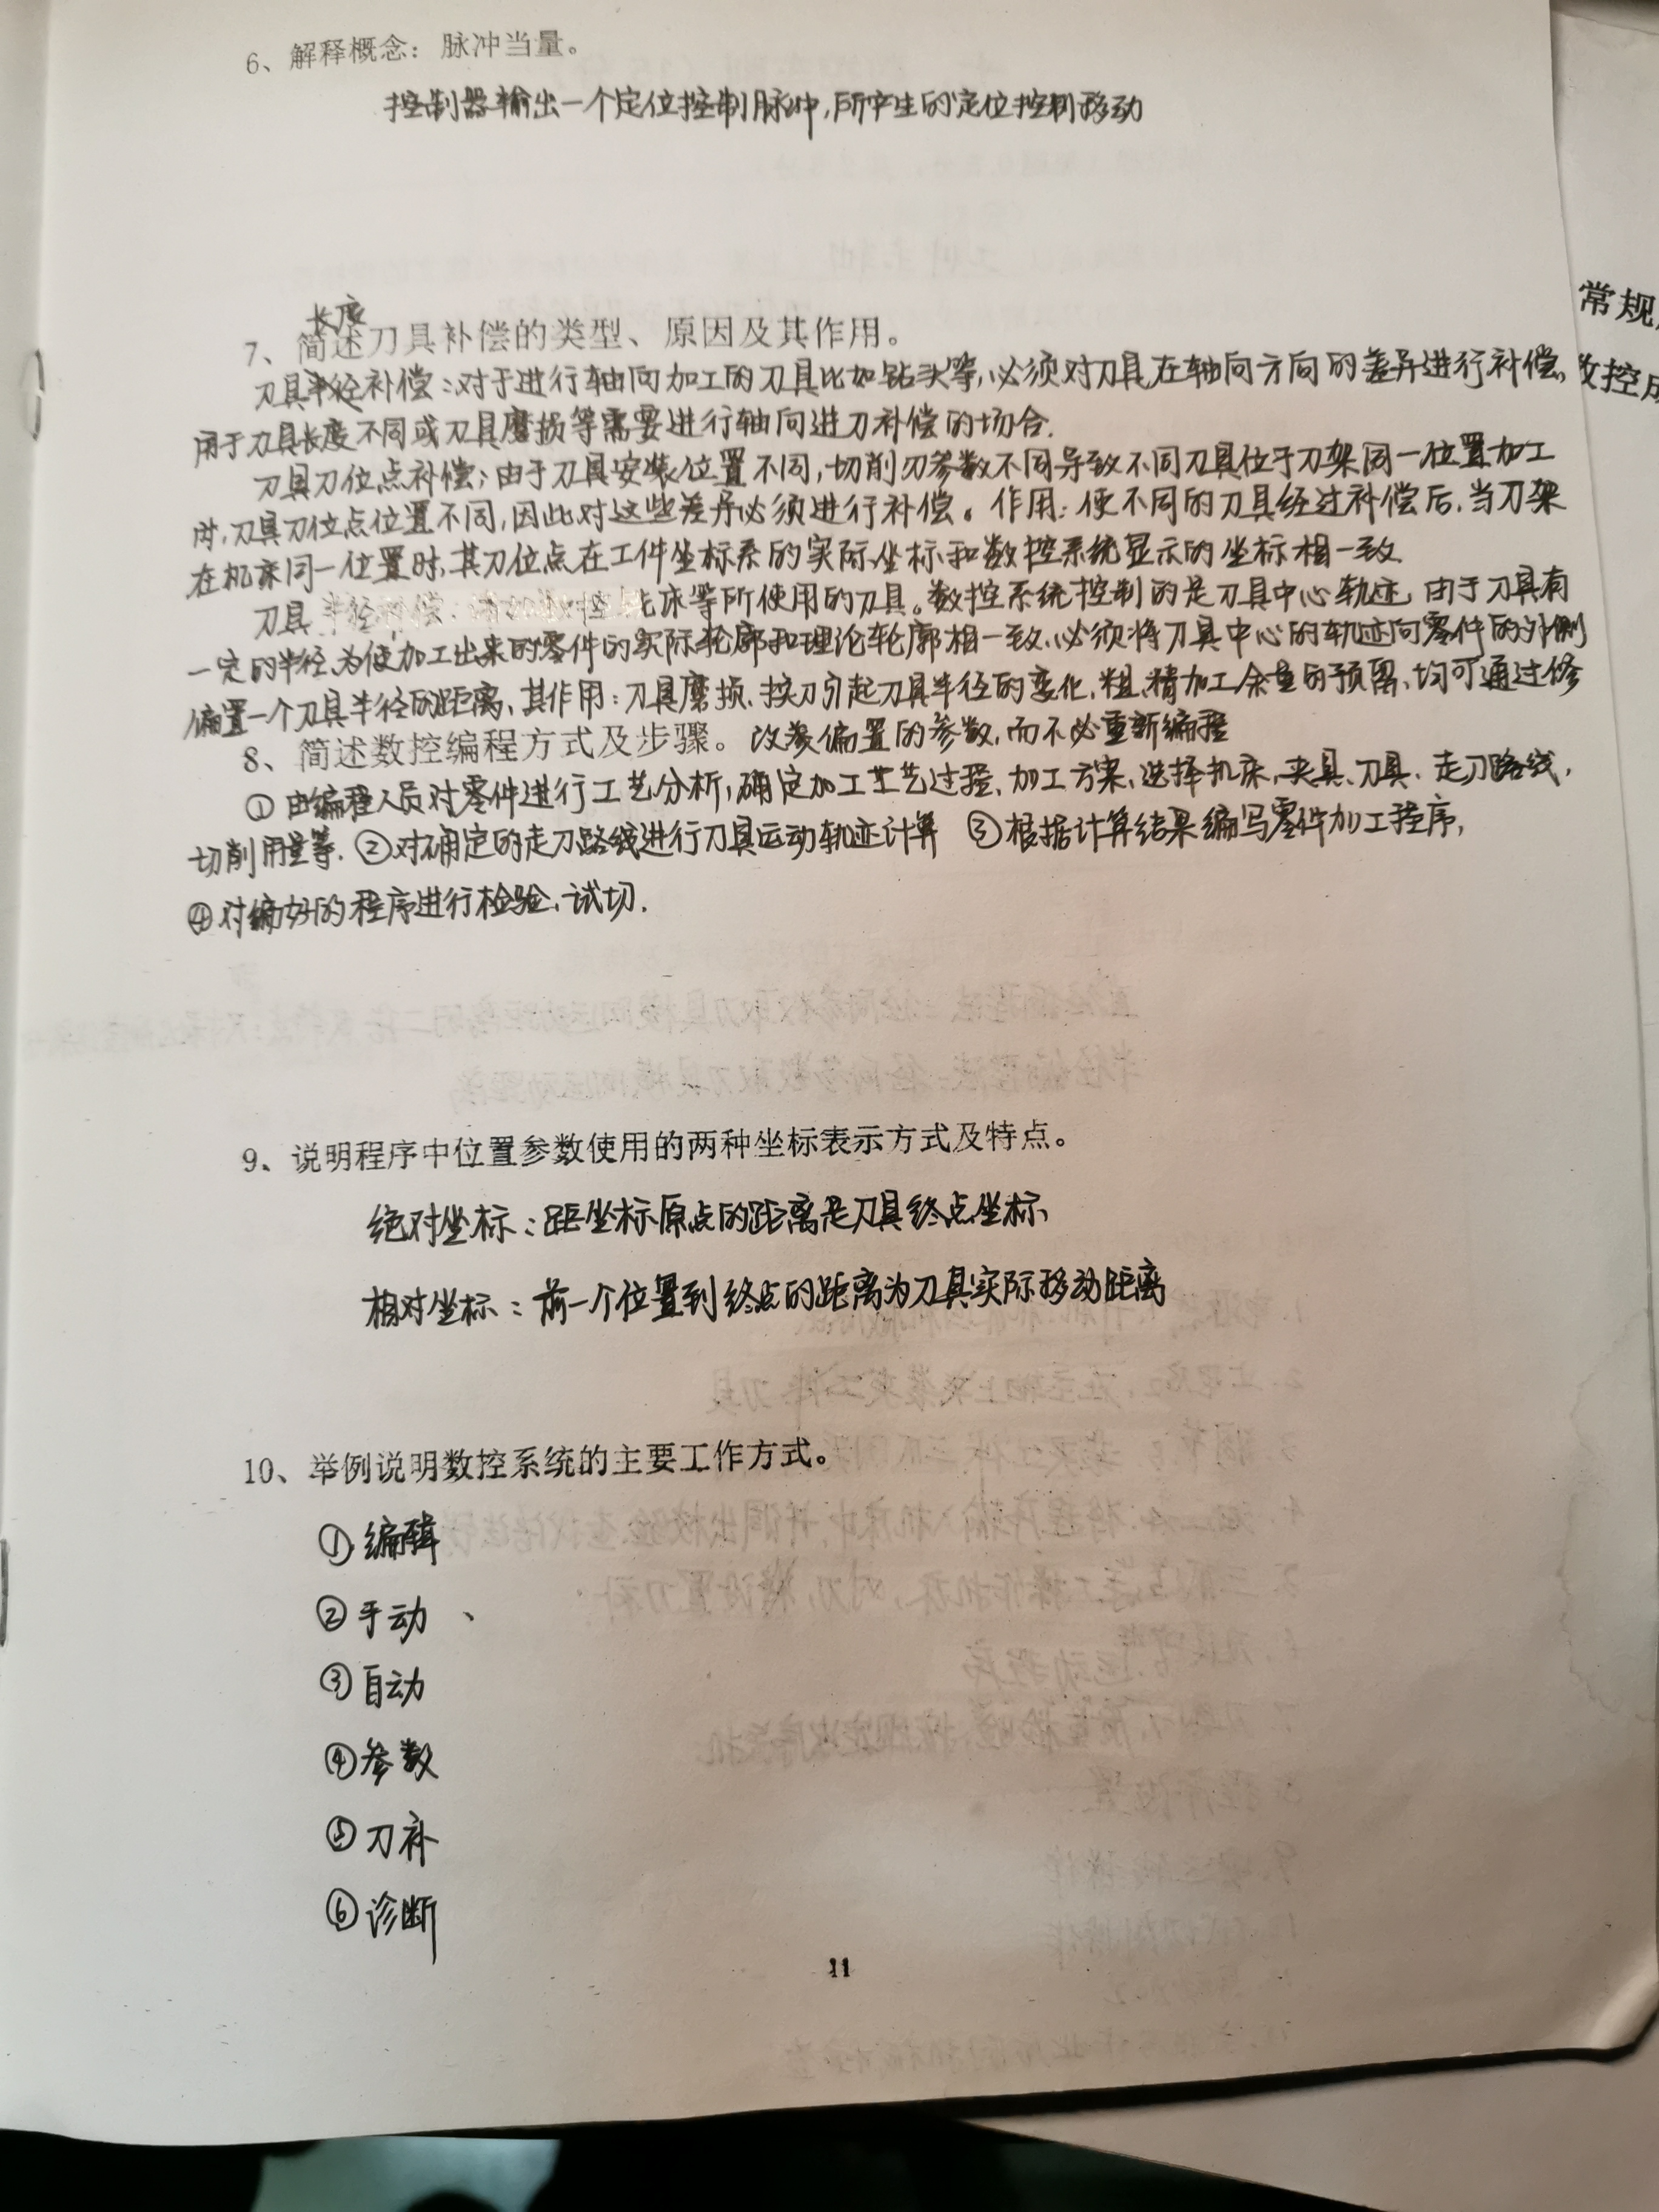 6、解释概念：脉冲当量。
控制器输出一个定位控制脉冲，所产生的定位控制移动
常规
长度
7、简述刀具补偿的类型、原因及其作用。
刀具半径补偿：对于进行轴向加工的刀具比如钻头等，必须对刀具在轴向方向的差异进行补偿，
数控成
用于刀具长度不同或刀具磨损等需要进行轴向进刀补偿的场合.
刀具刀位点补偿；由于刀具安装位置不同，切削刃参数不同导致不同刀具位于刀架同一位置加工
时，刀具刀位点位置不同，因此对这些差异必须进行补偿。作用：使不同的刀具经过补偿后，当刀架
在机床同一位置时，其刀位点在工件坐标系的实际坐标和数控系统显示的坐标相一致
刀具半径补偿：铣床等所使用的刀具。数控系统控制的是刀具中心轨迹，由于刀具有
一定的半径、为使加工出来的零件的实际轮廓和理论轮廓相一致、必须将刀具中心的轨迹向零件的外侧
偏置一个刀具半径的距离、其作用：刀具磨损、换刀引起刀具半径的变化，粗、精加工余量的预留、均可通过修
8、简述数控编程方式及步骤。改变偏置的参数，而不必重新编程
① 由编程人员对零件进行工艺分析，确定加工工艺过程、加工方案、选择机床、夹具、刀具、走刀路线，
切削用量等. ②对确定的走刀路线进行刀具运动轨迹计算 ③根据计算结果编写零件加工程序，
④对编好的程序进行检验、试切.
9、说明程序中位置参数使用的两种坐标表示方式及特点。
绝对坐标：距坐标原点的距离是刀具终点坐标
相对坐标：前一个位置到终点的距离为刀具实际移动距离
10、举例说明数控系统的主要工作方式。
① 编辑
② 手动、
③ 自动
④ 参数
⑤ 刀补
⑥ 诊断
11